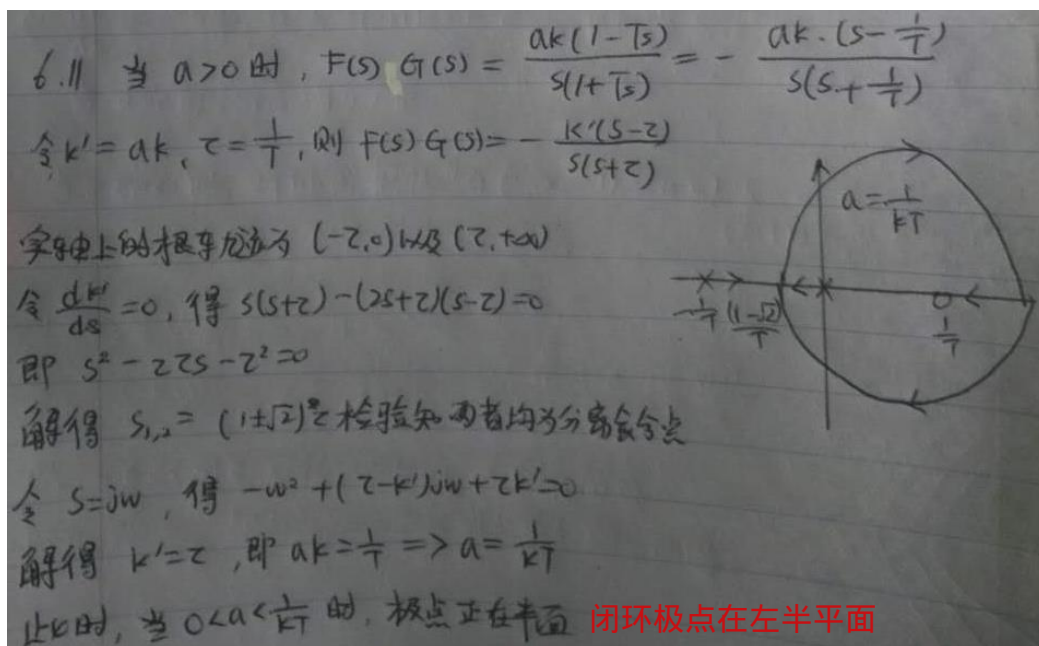 6.11 当 a>0 时, F(s) G(s) = ak(1-Ts)/s(1+Ts) = - ak·(s-1/T)/s(s+1/T)
令 k'=ak, τ=1/T, 则 F(s)G(s)=- k'(s-τ)/s(s+τ)
实轴上的根轨迹为 (-τ,0)以及(τ,+∞)
令 dk'/ds =0, 得 s(s+τ)-(2s+τ)(s-τ)=0
即 s²-2τs-τ²=0
解得 s₁,₂= (1±√2)τ 检验知两者均为分离会合点
令 s=jw, 得 -w²+(τ-k')jw+τk'=0
解得 k'=τ, 即 ak=1/T => a=1/kT
此时, 当 0<a<1/kT 时, 极点 半面 闭环极点在左半平面
a=1/kT
-1/T (1-√2)/T 1/T